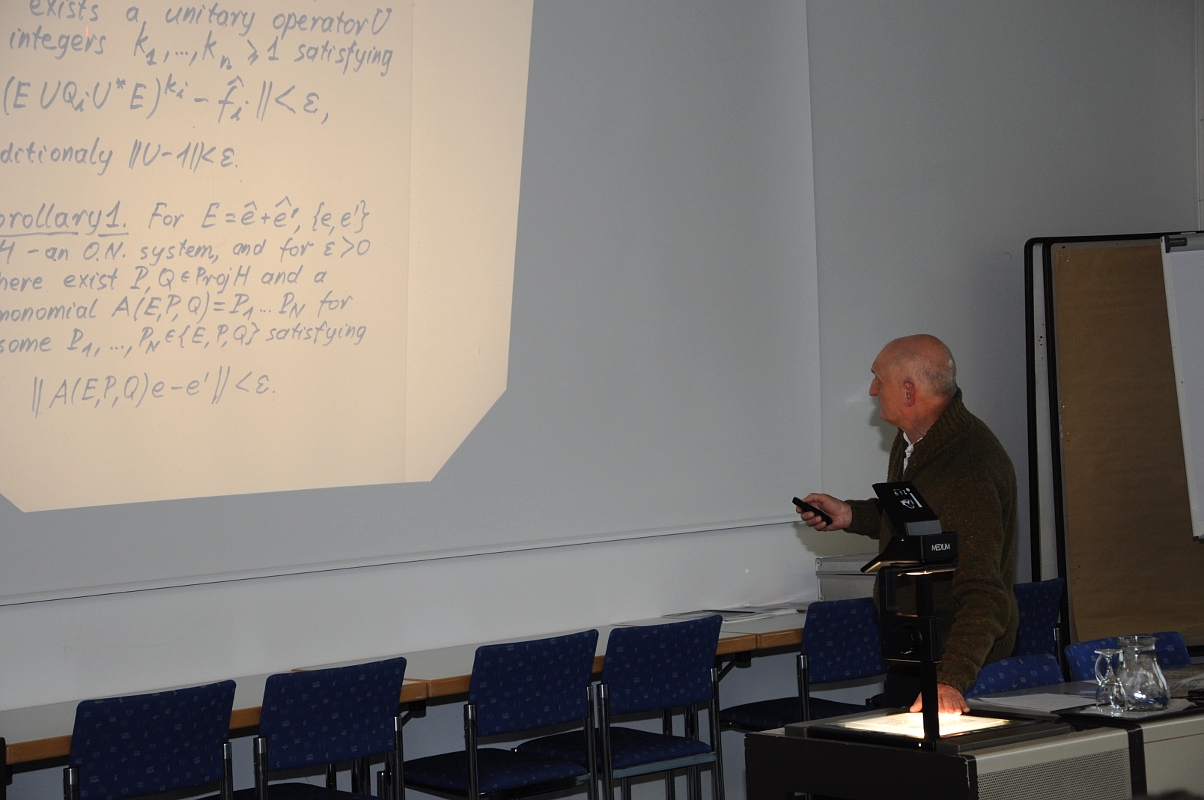 exists a, unitary operator U
integers k₁,...,kₙ ⩾ 1 satisfying
(E U Qᵢ U* E)^kᵢ - f̂ᵢ || < ε,
ditionaly ||U-1|| < ε.
orollary 1. For E = ê + ê', {e, e'}
H - an O.N. system, and for ε > 0
here exist P, Q ∈ Proj H and a
monomial A(E,P,Q) = P₁...P_N for
some P₁, ..., P_N ∈ {E, P, Q} satisfying
|| A(E,P,Q)e - e' || < ε.
MEDIUM